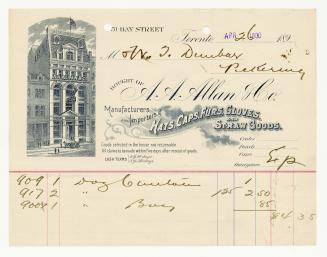 51 BAY STREET
Toronto APR 26 1890 189
M W. J. Dunbar
Pickering
BOUGHT OF
A. A. Allan & Co.
Manufacturers
and Importers
HATS, CAPS, FURS, GLOVES,
AND
STRAW GOODS.
Goods selected in the house not returnable
All claims to be made within five days after receipt of goods.
CASH TERMS
Order
Exp
909 1 Doz 1
917 2 " 125 2 50
900 1 " Boy 85